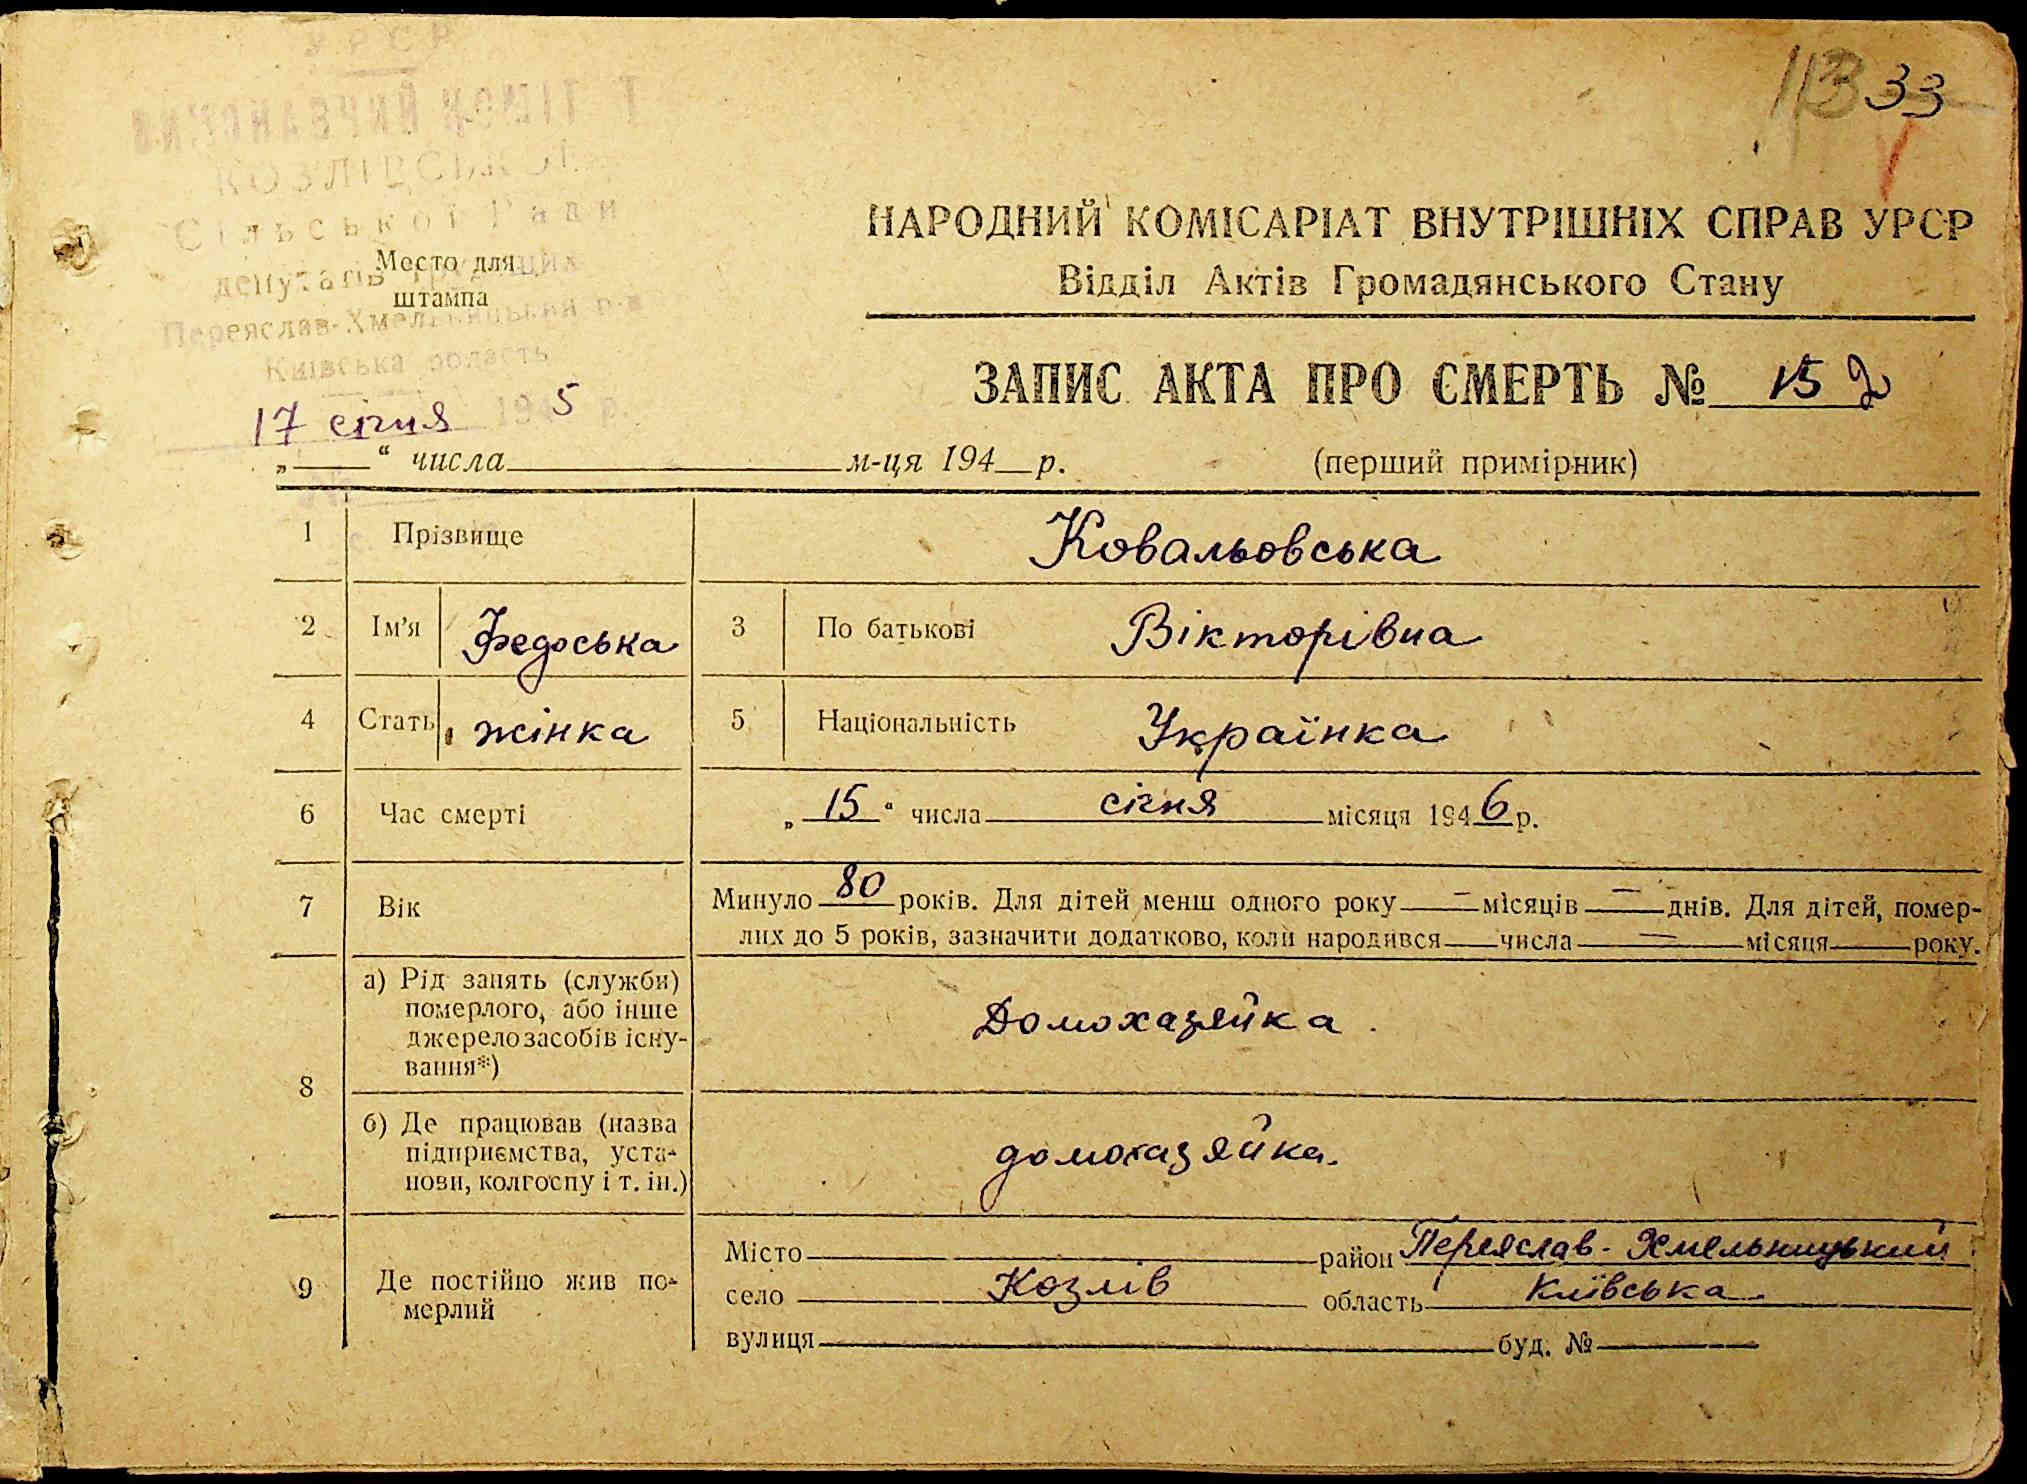 УРСР
113 33
КОЗЛІВСЬКОЇ
Сільської Ради
НАРОДНИЙ КОМІСАРІАТ ВНУТРІШНІХ СПРАВ УРСР
депутатів
Место для
штампа
Відділ Актів Громадянського Стану
Переяслав-Хмельницький р-н
Київська область
ЗАПИС АКТА ПРО СМЕРТЬ № 15
17 січня 1945 р.
„ “ числа м-ця 194 р. (перший примірник)
1 Прізвище Ковальовська
2 Ім'я Федоська 3 По батькові Вікторівна
4 Стать жінка 5 Національність Українка
6 Час смерті „15“ числа січня місяця 1946 р.
7 Вік Минуло 80 років. Для дітей менш одного року — місяців — днів. Для дітей, помер-
лих до 5 років, зазначити додатково, коли народився числа — місяця року.
8 а) Рід занять (служби)
померлого, або інше
джерело засобів існу-
вання*)
Домохазяйка.
б) Де працював (назва
підприємства, уста-
нови, колгоспу і т. ін.)
домохазяйка.
9 Де постійно жив по-
мерлий
Місто район Переяслав-Хмельницький
село Козлів область Київська
вулиця буд. №